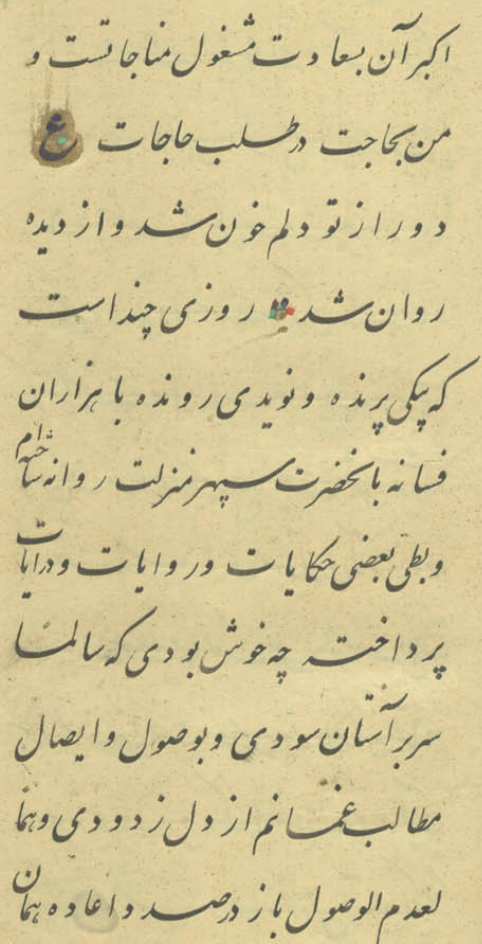 اکبر آن بسعادت مشغول مناجاتست و
من بحاجت در طلب حاجات ع
دور از تو دلم خون شد و از دیده
روان شد روزی چند است
که پیکی پرنده و نویدی رونده با هزاران
فسانه بانحضرت سپهر منزلت روانه ساخته‌ام
و بطی بعضی حکایات و روایات و درایات
پرداخته چه خوش بودی که سالما
سر بر آستان سودی و بوصول و ایصال
مطالب غمانم از دل زدودی و همانا
لعدم الوصول باز در صدد اعاده همان